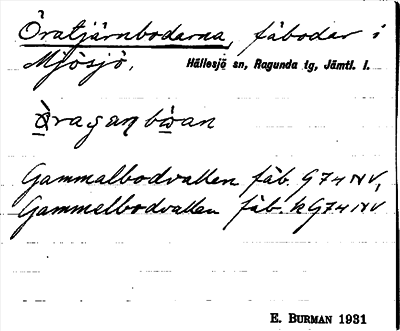 Öratjärnbodarna, fäbodar i
Mjösjö, Hällesjö sn, Ragunda tg, Jämtl. l.
Gammalbodvallen fäb. G74NV,
Gammelbodvallen fäb. k G74NV
E. BURMAN 1931